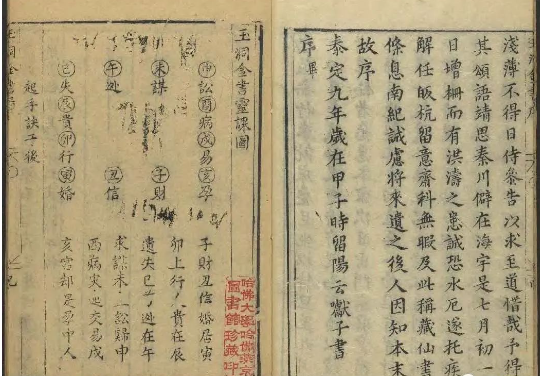 淺薄不得日侍叅告以求至道惜哉予得
其頌語靖思秦川僻在海宇是七月初一
日增柵而有洪濤之患誠恐水厄遂托疾
解任皈杭留意齋科無暇及此稱藏仙書
條息南紀誠慮將來遺之後人因知本末
故序
泰定九年歲在甲子時留陽云巘子書
序畢
玉洞金書靈課圖
申訟酉病戌易亥孕
未謀 子財
午逃 丑信
巳失辰貴卯行寅婚
起手訣子後
子財丑信婚居寅
卯上行 貴在辰
遺失巳 逃在午
求謀未 訟歸申
酉病 交易戌
亥宮却是孕中人
哈佛大學哈佛燕京
圖書館珍藏印